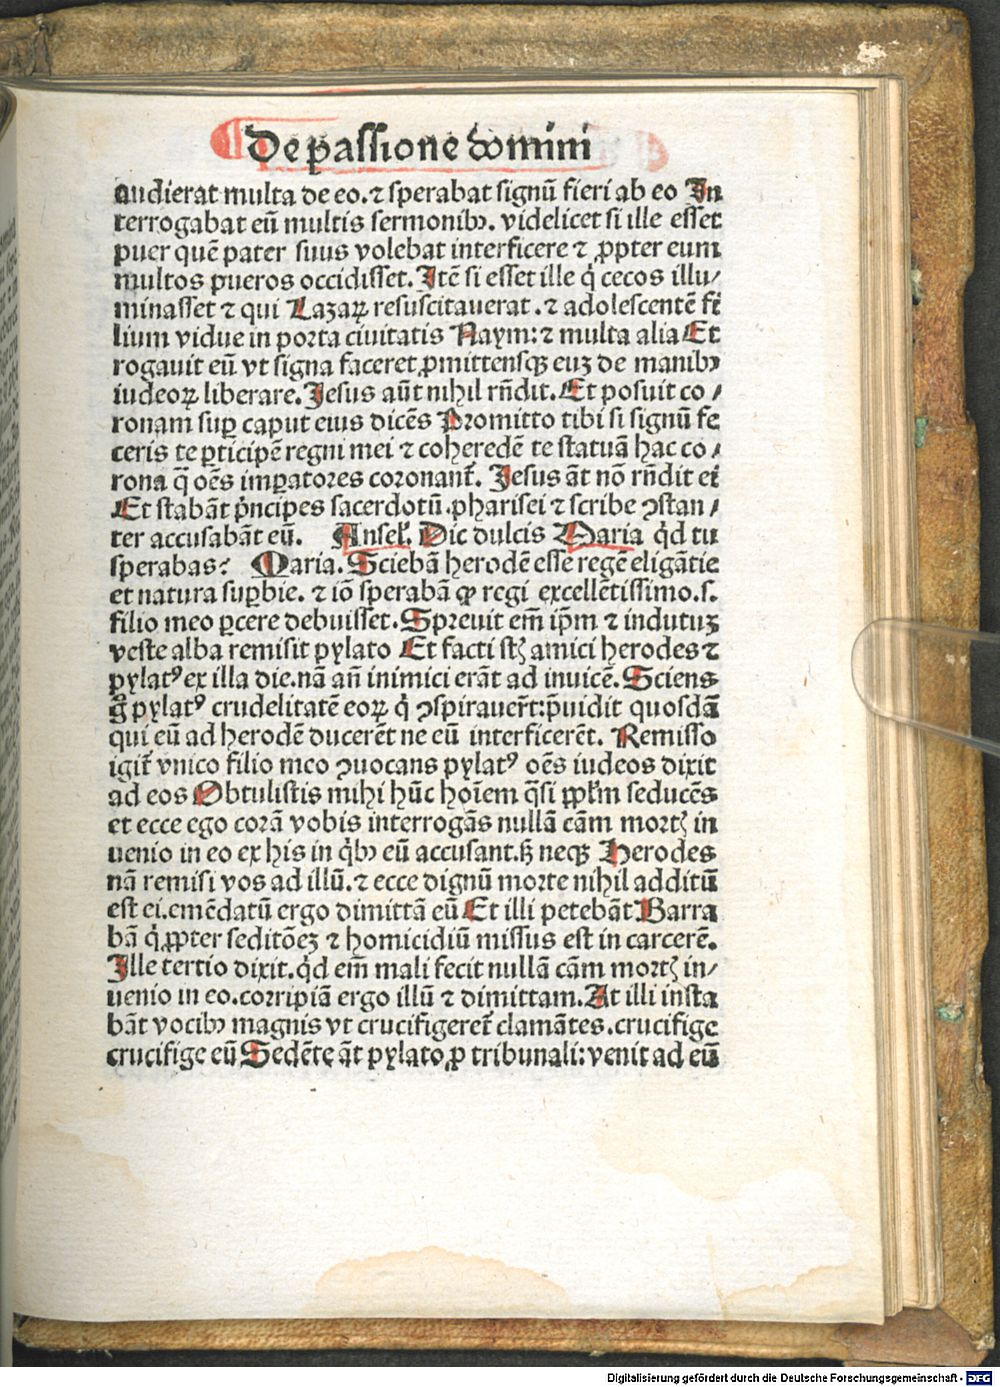 De passione domini
audierat multa de eo. ⁊ sperabat signū fieri ab eo In
terrogabat eū multis sermonibꝫ. videlicet si ille esset
puer quē pater suus volebat interficere ⁊ ꝓpter eum
multos pueros occidisset. Itē si esset ille q̇ cecos illu/
minasset ⁊ qui Lazaꝝ resuscitauerat. ⁊ adolescentē fi
lium vidue in porta ciuitatis Naym: ⁊ multa alia Et
rogauit eū vt signa faceret ꝓmittensqꝫ euꝫ de manibꝫ
iudeoꝝ liberare. Jesus aūt nihil rñdit. Et posuit co/
ronam suꝑ caput eius dicēs Promitto tibi si signū fe
ceris te ꝑticipē regni mei ⁊ coheredē te statuā hac co/
rona q̄ oēs imꝑatores coronant᷑. Jesus āt nō rñdit ei
Et stabāt pͥncipes sacerdotū. pharisei ⁊ scribe ꝯstan/
ter accusabāt eū. Anseł. Dic dulcis Maria qͥd tu
sperabas? Maria. Sciebā herodē esse regē eligātie
et natura suꝑbie. ⁊ iō sperabā ꝙ regi excellētissimo. s.
filio meo ꝑcere debuisset. Spreuit em̄ ip̄m ⁊ indutuꝫ
veste alba remisit pylato Et facti st̄ amici herodes ⁊
pylatꝰ ex illa die. nā añ inimici erāt ad inuicē. Sciens
g̊ pylatꝰ crudelitatē eoꝝ q̇ ꝯspirauer̄t: p̄uidit quosdā
qui eū ad herodē ducerēt ne eū interficerēt. Remisso
igit᷑ vnico filio meo ꝯuocans pylatꝰ oēs iudeos dixit
ad eos Obtulistis mihi hūc hoīem q̄si ppl̄m seducēs
et ecce ego corā vobis interrogās nullā cām mortꝭ in
uenio in eo ex his in q̇bꝫ eū accusant. sꝫ neqꝫ Herodes
nā remisi vos ad illū. ⁊ ecce dignū morte nihil additū
est ei. emēdatū ergo dimittā eū Et illi petebāt Barra
bā q̇ ꝓpter seditōeꝫ ⁊ homicidiū missus est in carcerē.
Ille tertio dixit. qͥd em̄ mali fecit nullā cām mortꝭ in/
uenio in eo. corripiā ergo illū ⁊ dimittam. At illi insta
bāt vocibꝫ magnis vt crucifigeret᷑ clamātes. crucifige
crucifige eū Sedēte āt pylato ꝓ tribunali: venit ad eū
Digitalisierung gefördert durch die Deutsche Forschungsgemeinschaft - DFG